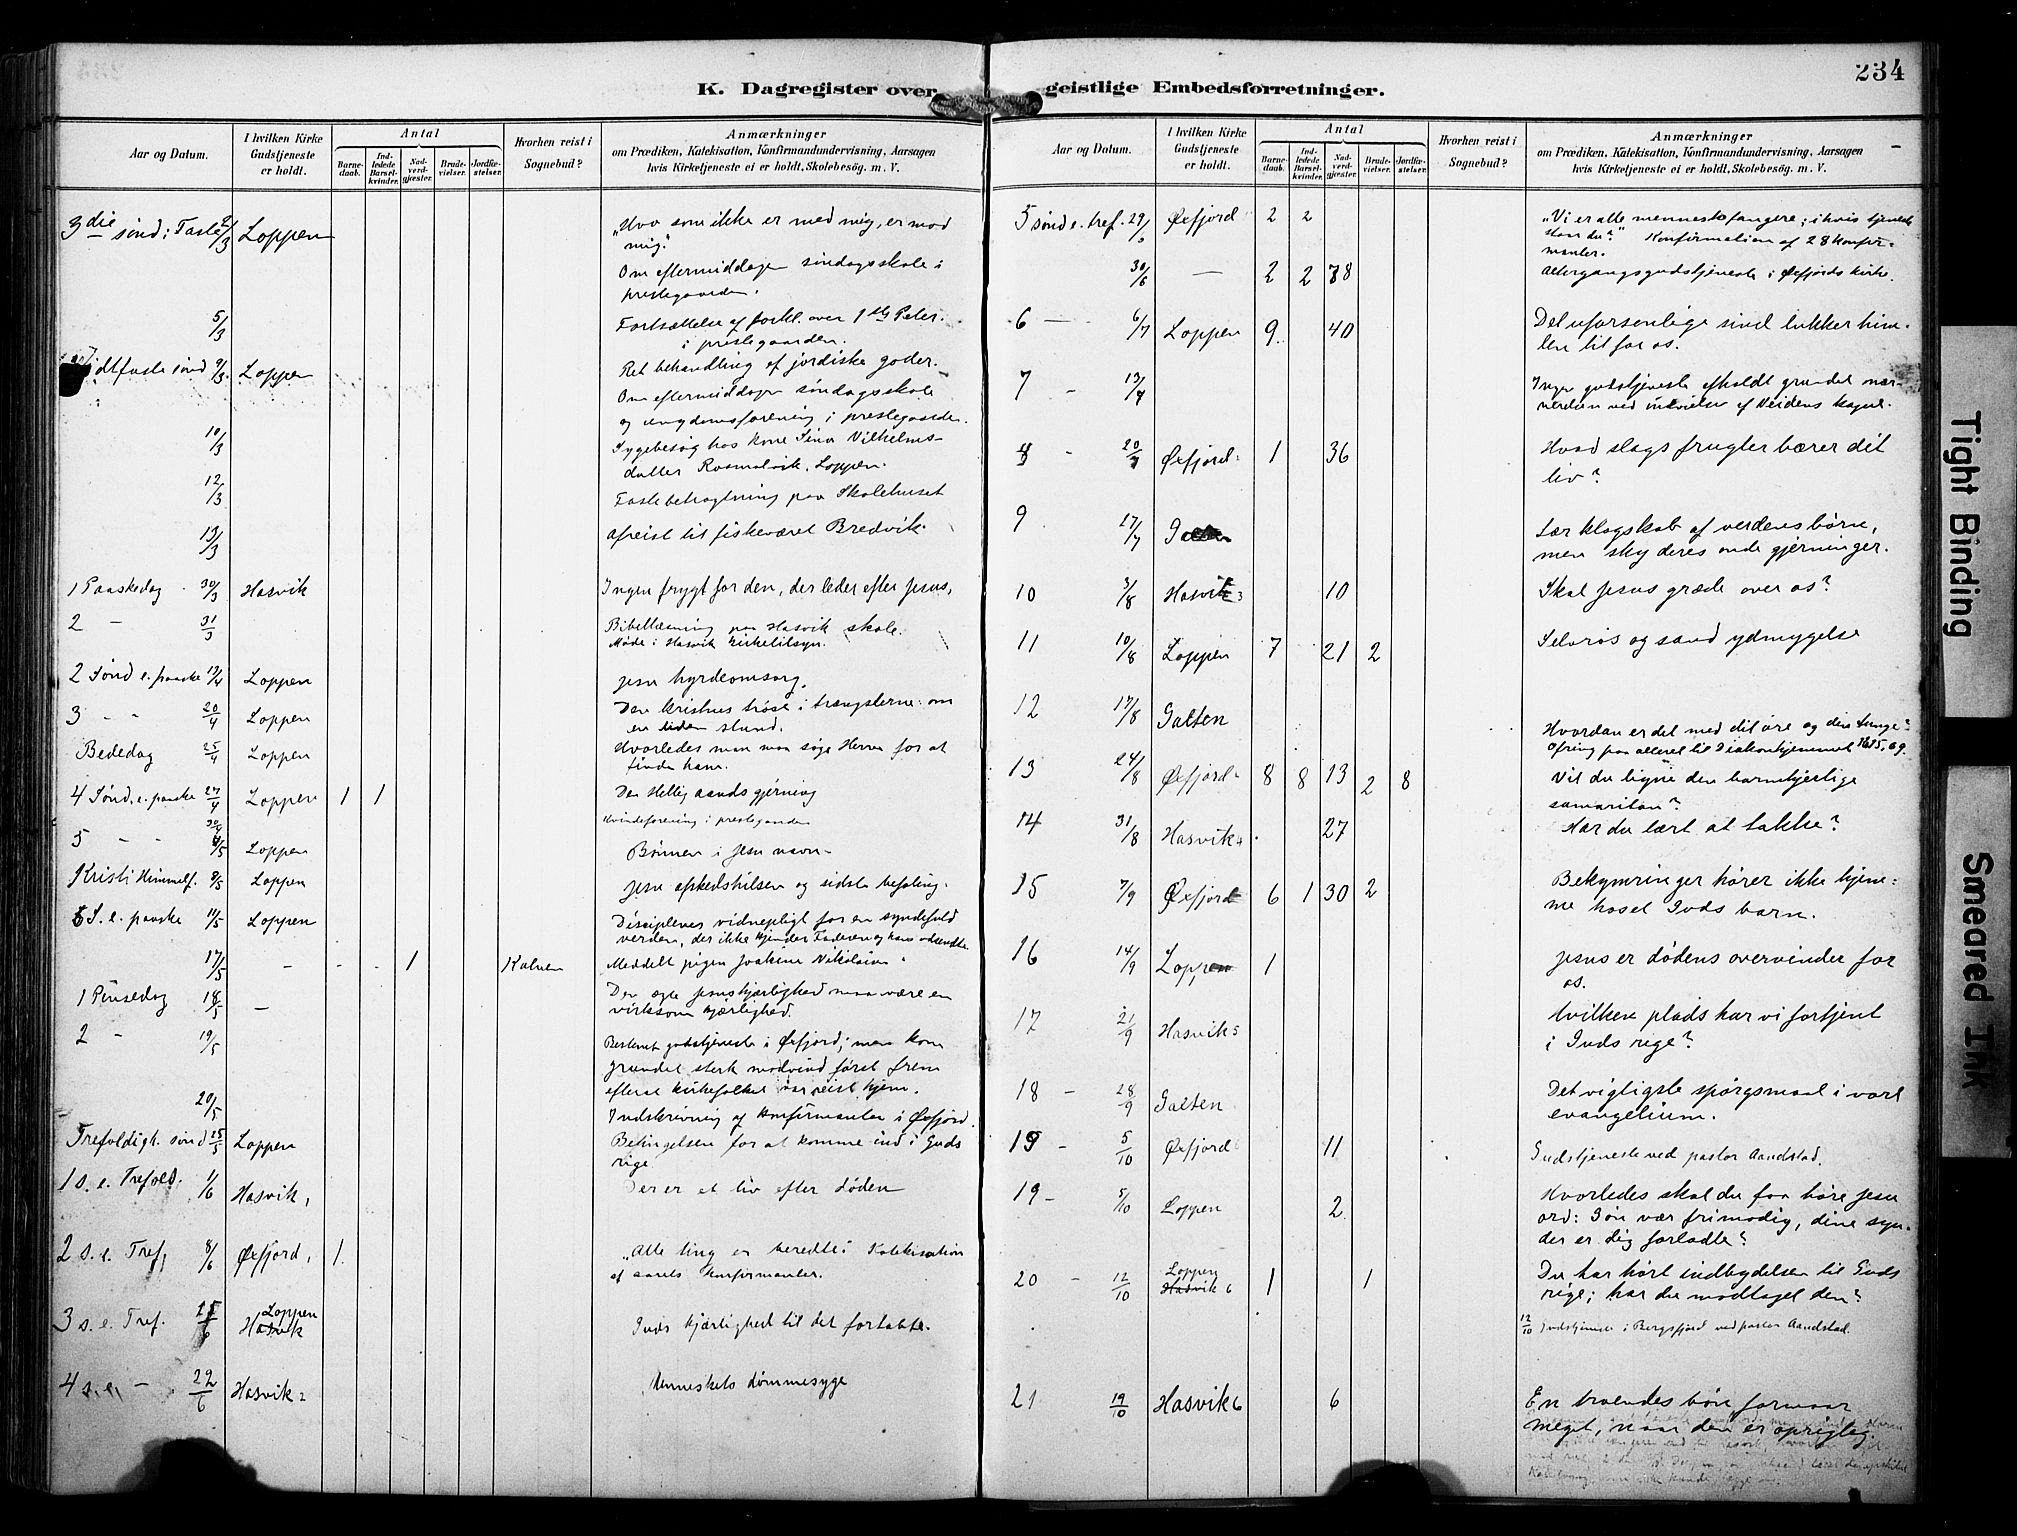 234
K. Dagregister over geistlige Embedsforretninger.
Aar og Datum.
I hvilken Kirke Gudstjeneste er holdt.
Antal
Barnedaab.
Indledede Barselkvinder.
Nadverdgjæster.
Brudevielser.
Jordfæstelser.
Hvorhen reist i Sognebud?
Anmærkninger
om Prædiken, Katekisation, Konfirmandundervisning, Aarsagen
hvis Kirketjeneste ei er holdt, Skolebesøg. m. V.
3die sønd i Faste 2/3 Loppen "Hvo som ikke er med mig, er mod
mig."
Om eftermiddagen søndagsskole i
prestegaarden.
5/3 Fortsættelse af forkl. over 1ste Peter.
i prestegaarden.
Midtfaste sønd 9/3. Loppen Ret behandling af jordiske goder.
Om eftermiddagen søndagsskole
og ungdomsforening i prestegaarden.
10/3 Sygebesøg hos kone Sina Vilhelms-
datter Loppen.
12/3 Fastebetragtning paa Skolehuset
13/3 afreist til fiskeværet Bredvik.
1 Paaskedag 30/3 Hasvik Ingen frygt for den, der leder efter Jesus,
2 - 31/3 Bibellæsning paa Hasvik skole.
Møde i Hasvik kirketilsyn.
2 Sønd e. paaske 13/4 Loppen Jesu hyrdeomsorg,
3 - - 20/4 Loppen Den kristnes trøst i trængslerne: om
en liden stund.
Bededag 25/4 Loppen Hvorledes man maa søge Herren for at
finde ham.
4 Sønd. e. paaske 27/4 Loppen 1 1 Den Hellig aands gjerning
30/4 Kvindeforening i prestegaarden
5 - - 4/5 Loppen Bønnen i Jesu navn -
Kristi Himmelf. 8/5 Loppen Jesu afskedshilsen og sidste befaling.
6 S. e. paaske 11/5 Loppen Disciplenes vidnepligt for en syndefuld
verden, der ikke kjender Faderen og hans udsendte.
17/5 - - - 1 Kalven Meddelt pigen Joakine Nikolaisen
1 Pinsedag 18/5 - Den ægte Jesuskjærlighed maa være en
virksom kjærlighed.
2 - 19/5 Bestemt gudstjeneste i Øxfjord; men kom
grundet sterk modvind først frem
efterat kirkefolket var reist hjem.
20/5 Indskrivning af konfirmanter i Øxfjord.
Trefoldigh. sønd 25/5 Loppen Betingelsen for at komme ind i Guds
rige
1 s. e. Trefold. 1/6 Hasvik, Der er et liv efter døden
2 s. e. Tref, 8/6 Øxfjord, 1. "Alle ting er beredte". Katekisation
af aarets konfirmanter.
3 s. e. Tref. 15/6 Loppen
Hasvik Guds kjærlighed til det fortabte.
4 s. e. - 22/6 Hasvik 2 Menneskets dømmesyge
5 sønd e. tref. 29/6 Øxfjord 2 2 "Vi er alle menneskefangere; i hvis tjeneste
staar du?" Konfirmation af 28 konfir-
manter.
30/6 - 2 2 78 Altergangsgudstjeneste i Øxfjords kirke.
6 - 6/7 Loppen 9. 40 Det uforsonlige sind lukker him-
len til for os.
7 - 13/7 Ingen gudstjeneste afholdt grundet nær-
værelsen ved indvielse af Veidnes kapel.
8 - 20/7 Øxfjord 1 36 Hvad slags frugter bærer dit
liv?
9 27/7 Galten Lær klogskab af verdens børn,
men sky deres onde gjerninger.
10 3/8 Hasvik 3 10 Skal Jesus græde over os?
11 10/8 Loppen 7 21 2 Selvros og sand ydmygelse
12 17/8 Galten Hvordan er det med dit øre og din tunge?
Ofring paa alteret til Diakonhjemmet
13 24/8 Øxfjord 8 8 13 2 8 Vil du ligne den barmhjertige
samaritan?
14 31/8 Hasvik 4 27 Har du lært at takke?
15 7/9 Øxfjord 6 1 30 2 Bekymringer hører ikke hjem-
me hoset Guds barn.
16 14/9 Loppen 1 Jesus er dødens overvinder for
os.
17 21/9 Hasvik 5 Hvilken plads har vi fortjent
i Guds rige?
18 - 28/9 Galten Det vigtigste spørgsmaal i vort
evangelium.
19 - 5/10 Øxfjord 11 Gudstjeneste ved pastor Aandstad.
19 - 5/10 Loppen 2 Hvorledes skal du faa høre Jesu
ord: Søn vær frimodig, dine syn-
der er dig forladte?
20 - 12/10 Loppen
Hasvik 6 1 1 Du har hørt indbydelsen til Guds
rige; har du modtaget den?
12/10 Gudstjeneste i Bergsfjord ved pastor Aandstad.
21 19/10 Hasvik 6 6 En troendes bøn formaar
meget, naar den er oprigtig.
Tight Binding
Smeared Ink